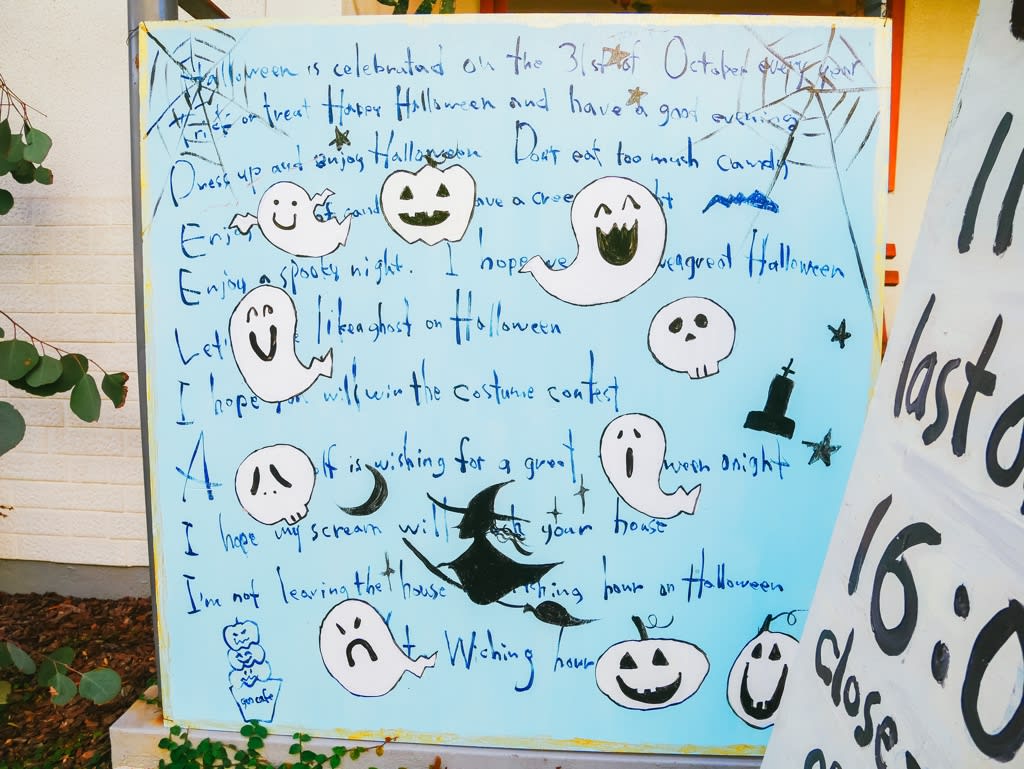 Halloween is celebrated on the 31st of October every year
Trick or treat Happy Halloween and have a good evening
Dress up and enjoy Halloween Don't eat too much candy
Enjoy
Enjoy a spooky night. I hope we great Halloween
Let's like a ghost on Halloween
I hope you will win the costume contest
A is wishing for a great
I hope my scream will your house
I'm not leaving the house hour on Halloween
Wiching hour
gus cafe
11
last o
16:0
close